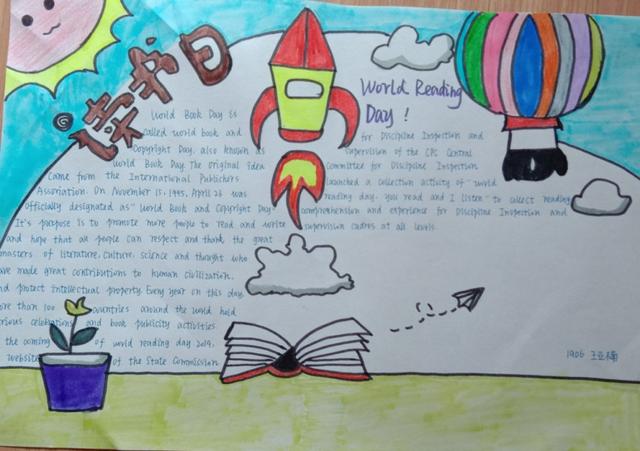 读书日
World Reading
Day!
World Book Day is
called world book and
Copyright Day, also known as
World Book Day. The original idea
Came from the International Publishers
Association. On November 15, 1995, April 23 was
officially designated as "World Book and Copyright Day
It's purpose is to promote more people to read and write
and hope that all people can respect and thank the great
masters of literature, culture, science and thought who
ave made great contributions to human civilization,
nd protect intellectual property. Every year on this day,
ore than 100 countries around the world hold
rious celebrations and book publicity activities.
the coming of world reading day 2019,
website of the State Commission
for Discipline Inspection and
supervision of the CPC Central
Committee for Discipline Inspection
launched a collection activity of "world
reading day, you read and I listen" to collect reading
comprehension and experience for Discipline Inspection and
supervision cadres at all levels.
1906 王亚楠